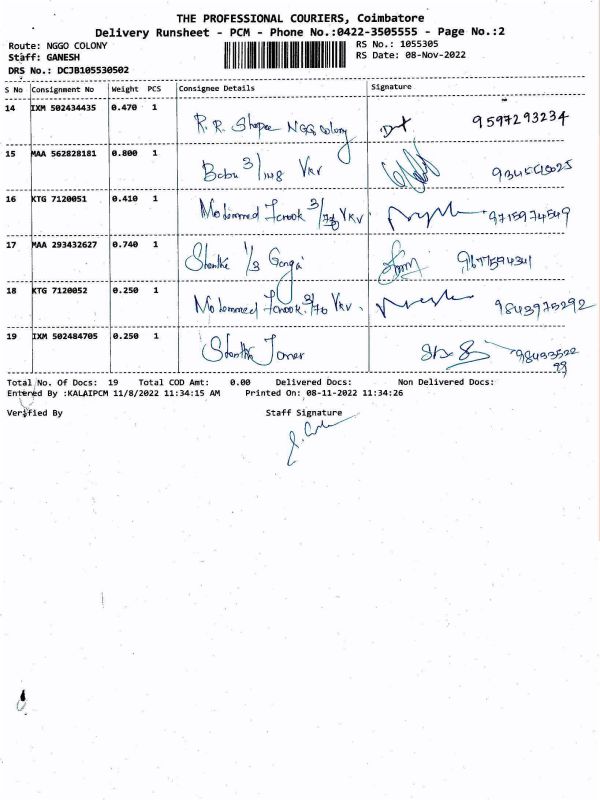 THE PROFESSIONAL COURIERS, Coimbatore
Delivery Runsheet - PCM - Phone No.:0422-3505555 - Page No.:2
Route: NGGO COLONY RS No.: 1055305
Staff: GANESH RS Date: 08-Nov-2022
DRS No.: DCJB105530502
S No Consignment No Weight PCS Consignee Details Signature
14 IXM 502434435 0.470 1 R.R. NGGO Colony 9597293234
15 MAA 562828181 0.800 1 Babu 3/148 VKV
16 KTG 7120051 0.410 1 Mohammed VKV 9715974549
17 MAA 293432627 0.740 1 1/3 Ganga 9677594341
18 KTG 7120052 0.250 1 Mohammed 3/76 VKV. 9843975292
19 IXM 502484705 0.250 1
Total No. Of Docs: 19 Total COD Amt: 0.00 Delivered Docs: Non Delivered Docs:
Entered By :KALAIPCM 11/8/2022 11:34:15 AM Printed On: 08-11-2022 11:34:26
Verified By Staff Signature